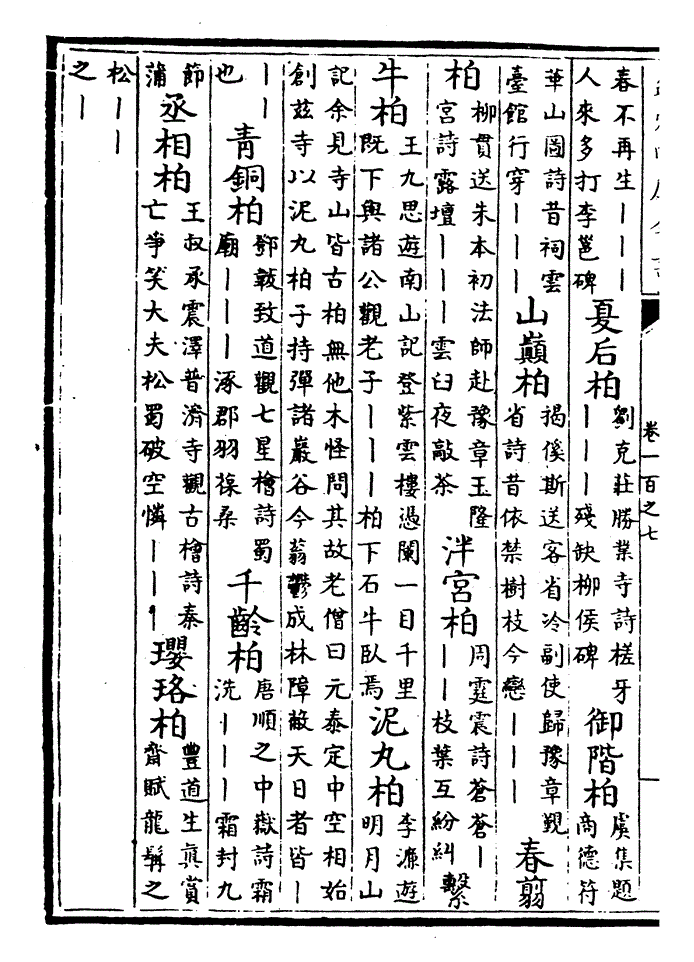 卷一百之七
春不再生｜｜｜
人來多打李邕碑
夏后柏
劉克莊勝業寺詩槎牙
｜｜｜殘缺柳侯碑
御階柏
虞集題
商德符
華山圖詩昔祠雲
臺館行穿｜｜｜
山巔柏
揭傒斯送客省冷副使歸豫章覲
省詩昔依禁樹枝今戀｜｜｜
春翦
柏
柳貫送朱本初法師赴豫章玉隆
宮詩露壇｜｜｜雲臼夜敲茶
泮宮柏
周霆震詩蒼蒼｜
｜｜枝葉互紛糾
繫
牛柏
王九思遊南山記登紫雲樓憑闌一目千里
既下與諸公觀老子｜｜｜柏下石牛臥焉
泥丸柏
李濂遊
明月山
記余見寺山皆古柏無他木怪問其故老僧曰元泰定中空相始
創茲寺以泥丸柏子持彈諸巖谷今蓊鬱成林障蔽天日者皆｜
｜｜
也
青銅柏
鄧韍致道觀七星檜詩蜀
廟｜｜｜涿郡羽葆桑
千齡柏
唐順之中嶽詩霜
洗｜｜｜霜封九
節
蒲
丞相柏
王叔承震澤普濟寺觀古檜詩秦
亡爭笑大夫松蜀破空憐｜｜｜
瓔珞柏
豐道生真賞
齋賦龍髯之
松｜｜
之｜